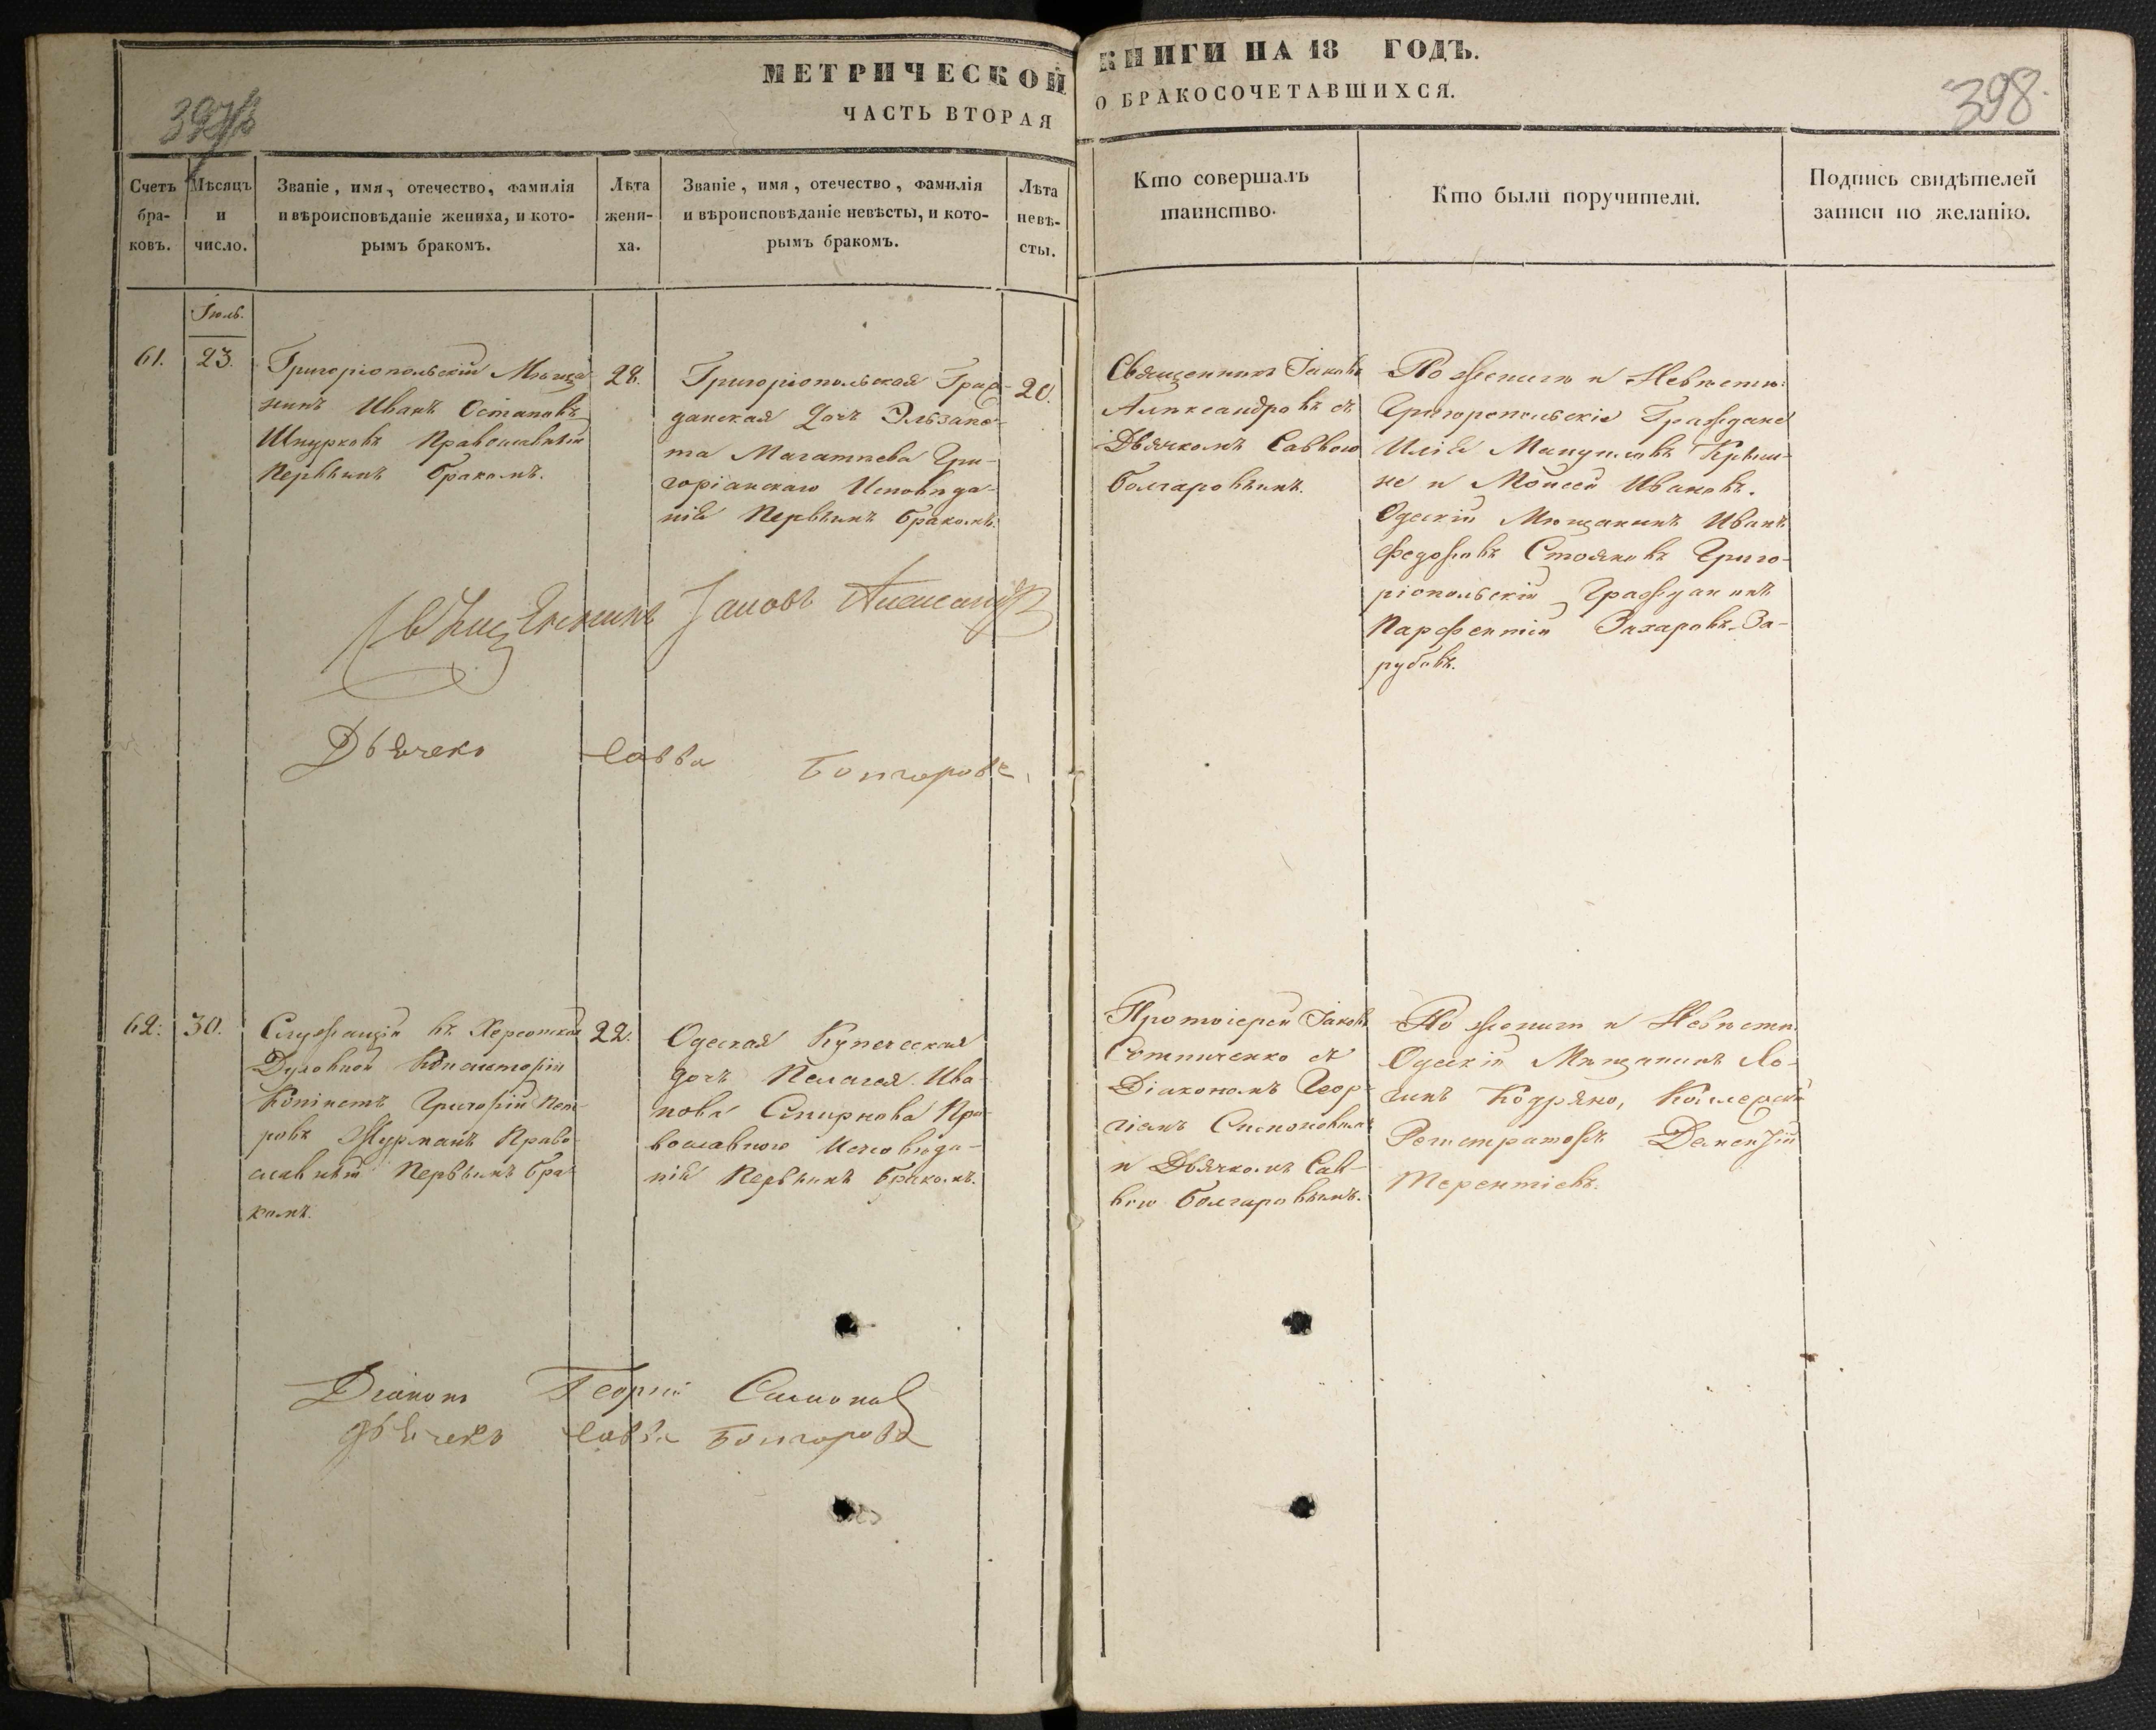 МЕТРИЧЕСКОЙ КНИГИ НА 18 ГОДЪ.
ЧАСТЬ ВТОРАЯ О БРАКОСОЧЕТАВШИХСЯ.
398.
Счетъ
бра-
ковъ.
Мѣсяцъ
и
число.
Званіе, имя, отечество, фамилія
и вѣроисповѣданіе жениха, и кото-
рымъ бракомъ.
Лѣта
жени-
ха.
Званіе, имя, отечество, фамилія
и вѣроисповѣданіе невѣсты, и кото-
рымъ бракомъ.
Лѣта
невѣ-
сты.
Кто совершалъ
таинство.
Кто были поручители.
Подпись свидѣтелей
записи по желанію.
Іюль.
61.
23.
Григоріопольскій Мѣща
нинъ Иванъ Остаповъ
Шнурковъ Православный
Первымъ бракомъ.
28.
Григоріопольская Граж-
данская дочь Эльзаве-
та Магатиева Гри-
горіанскаго Исповѣда-
нія Первымъ бракомъ.
20.
Священникъ Іаковъ
Александровъ съ
Дьячкомъ Саввою
Болгаровымъ.
По женихѣ и Невѣстѣ:
Григоропольскіе Граждане
Илія Мануиловъ
и Моисей Ивановъ.
Одескій Мѣщанинъ Иванъ
Федоровъ Стояновъ Григо-
ріопольскій Гражданинъ
Парфентій Захаровъ За-
рубовъ.
Священникъ Іаковъ Александровъ
Дьячекъ Савва Болгаровъ
62.
30.
Служащій въ Херсонской
Духовной Консисторіи
Копіистъ Григорій Пет-
ровъ Журманъ Право-
славный Первымъ бра-
комъ.
22.
Одеская Купеческая
дочь Пелагея Ива-
нова Смирнова Пра-
вославнаго Исповѣда-
нія Первымъ бракомъ.
Протоіерей Іаковъ
Сотниченко съ
Діакономъ Геор-
гіемъ
и Дьячкомъ Сав-
вою Болгаровымъ.
По женихѣ и Невѣстѣ
Одескій Мѣщанинъ Ло-
гинъ Кодряно, Колежскій
Регистраторъ
Терентіевъ.
Діаконъ Георгій
дьячекъ Савва Болгаровъ